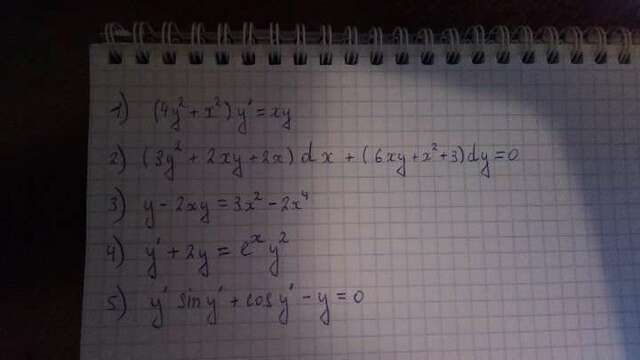 1) (4y² + x²) y' = xy
2) (3y² + 2xy + 2x) dx + (6xy + x² + 3) dy = 0
3) y - 2xy = 3x² - 2x⁴
4) y' + 2y = eˣ y²
5) y' sin y' + cos y' - y = 0